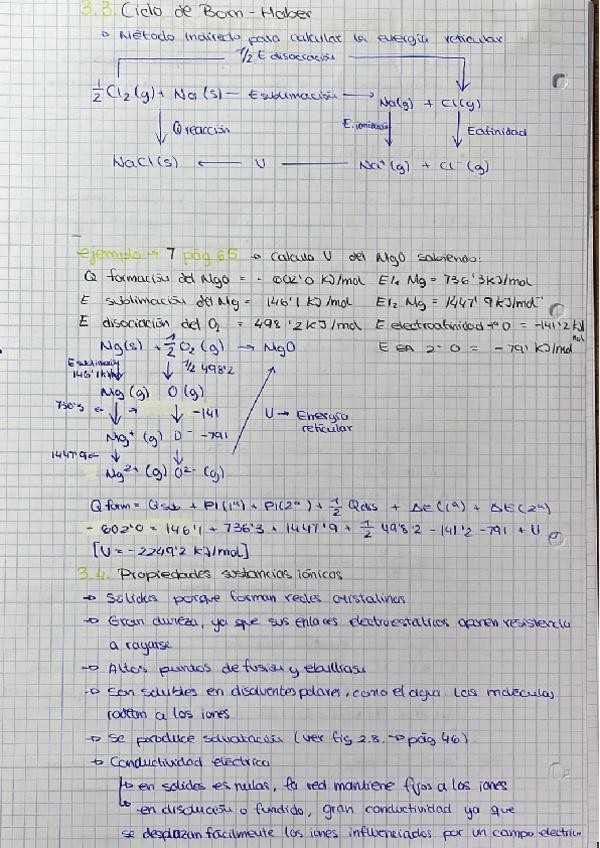 3.3. Ciclo de Born-Haber
Método indirecto para calcular la energía reticular
1/2 E disociación
1/2 Cl2(g) + Na(s) — E sublimación → Na(g) + Cl(g)
Q reacción E. ionización E afinidad
NaCl(s) ← U — Na+(g) + Cl-(g)
ejemplo → 7 pág 65 → calcula U del MgO sabiendo:
Q formación del MgO = - 602'0 KJ/mol EI1 Mg = 736'3KJ/mol
E sublimación del Mg = 146'1 KJ/mol EI2 Mg = 1447'9 KJ/mol
E disociación del O2 = 498'2 KJ/mol E electroafinidad 1º O = -141'2 KJ/mol
E EA 2º O = -791 KJ/mol
Mg(s) + 1/2 O2(g) → MgO
E sublimación 1/2 498'2
146'1 KJ/mol
Mg(g) O(g)
736'3 ← → -141 U → Energía
reticular
Mg+(g) O- -791
1447'9 ←
Mg2+(g) O2-(g)
Q form = Q sub + PI(1ª) + PI(2ª) + 1/2 Q dis + ΔE(1ª) + ΔE(2ª)
- 602'0 = 146'1 + 736'3 + 1447'9 + 1/2 498'2 - 141'2 - 791 + U
[U = -2249'2 KJ/mol]
3.4. Propiedades sustancias iónicas
→ Sólidos porque forman redes cristalinas
→ Gran dureza, ya que sus enlaces electroestáticos oponen resistencia
a rayarse
→ Altos puntos de fusión y ebullición
→ Son solubles en disolventes polares, como el agua. Las moléculas
rodean a los iones
→ Se produce solvatación (ver fig 2.8. → pág 46)
→ Conductividad eléctrica
↳ en sólidos es nulas, la red mantiene fijos a los iones
↳ en disolución o fundido, gran conductividad ya que
se desplazan fácilmente los iones influenciados por un campo eléctrico